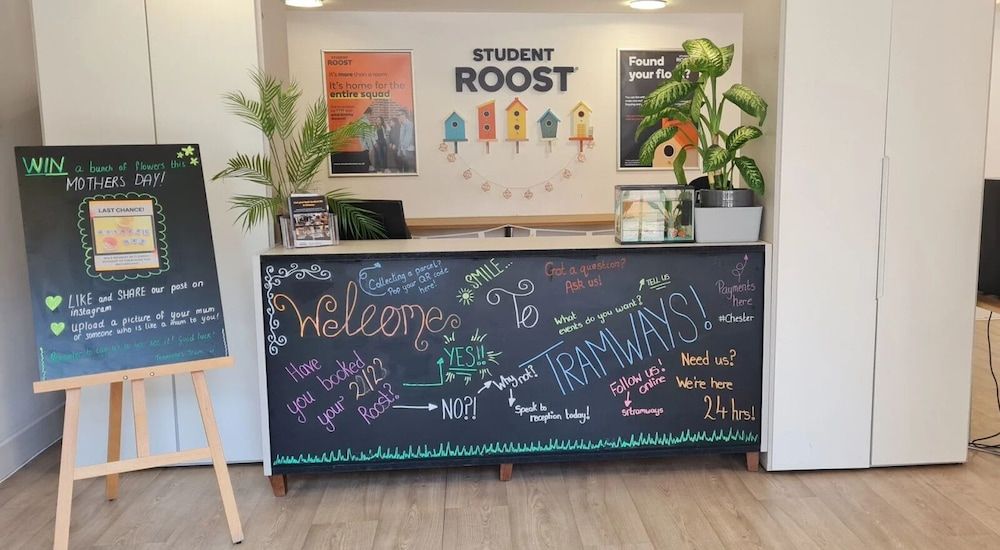 STUDENT
ROOST
STUDENT
ROOST
It's more than a room.
It's home for the
entire squad
Found
your flo
WIN a bunch of flowers this
MOTHERS DAY!
LAST CHANCE!
LIKE and SHARE our post on
instagram
Upload a picture of your mum
or someone who is like a mum to you!
Collecting a parcel?
Pop your QR code
here!
SMILE...
Got a question?
Ask us!
TELL US
Payments
here
#Chester
Welcome
To
What
events do you want?
TRAMWAYS!
Have
you booked
your 22/23
Roost?
YES!!
NO?!
Why not?
Speak to
reception today!
Follow us!
online
srtramways
Need us?
We're here
24 hrs!